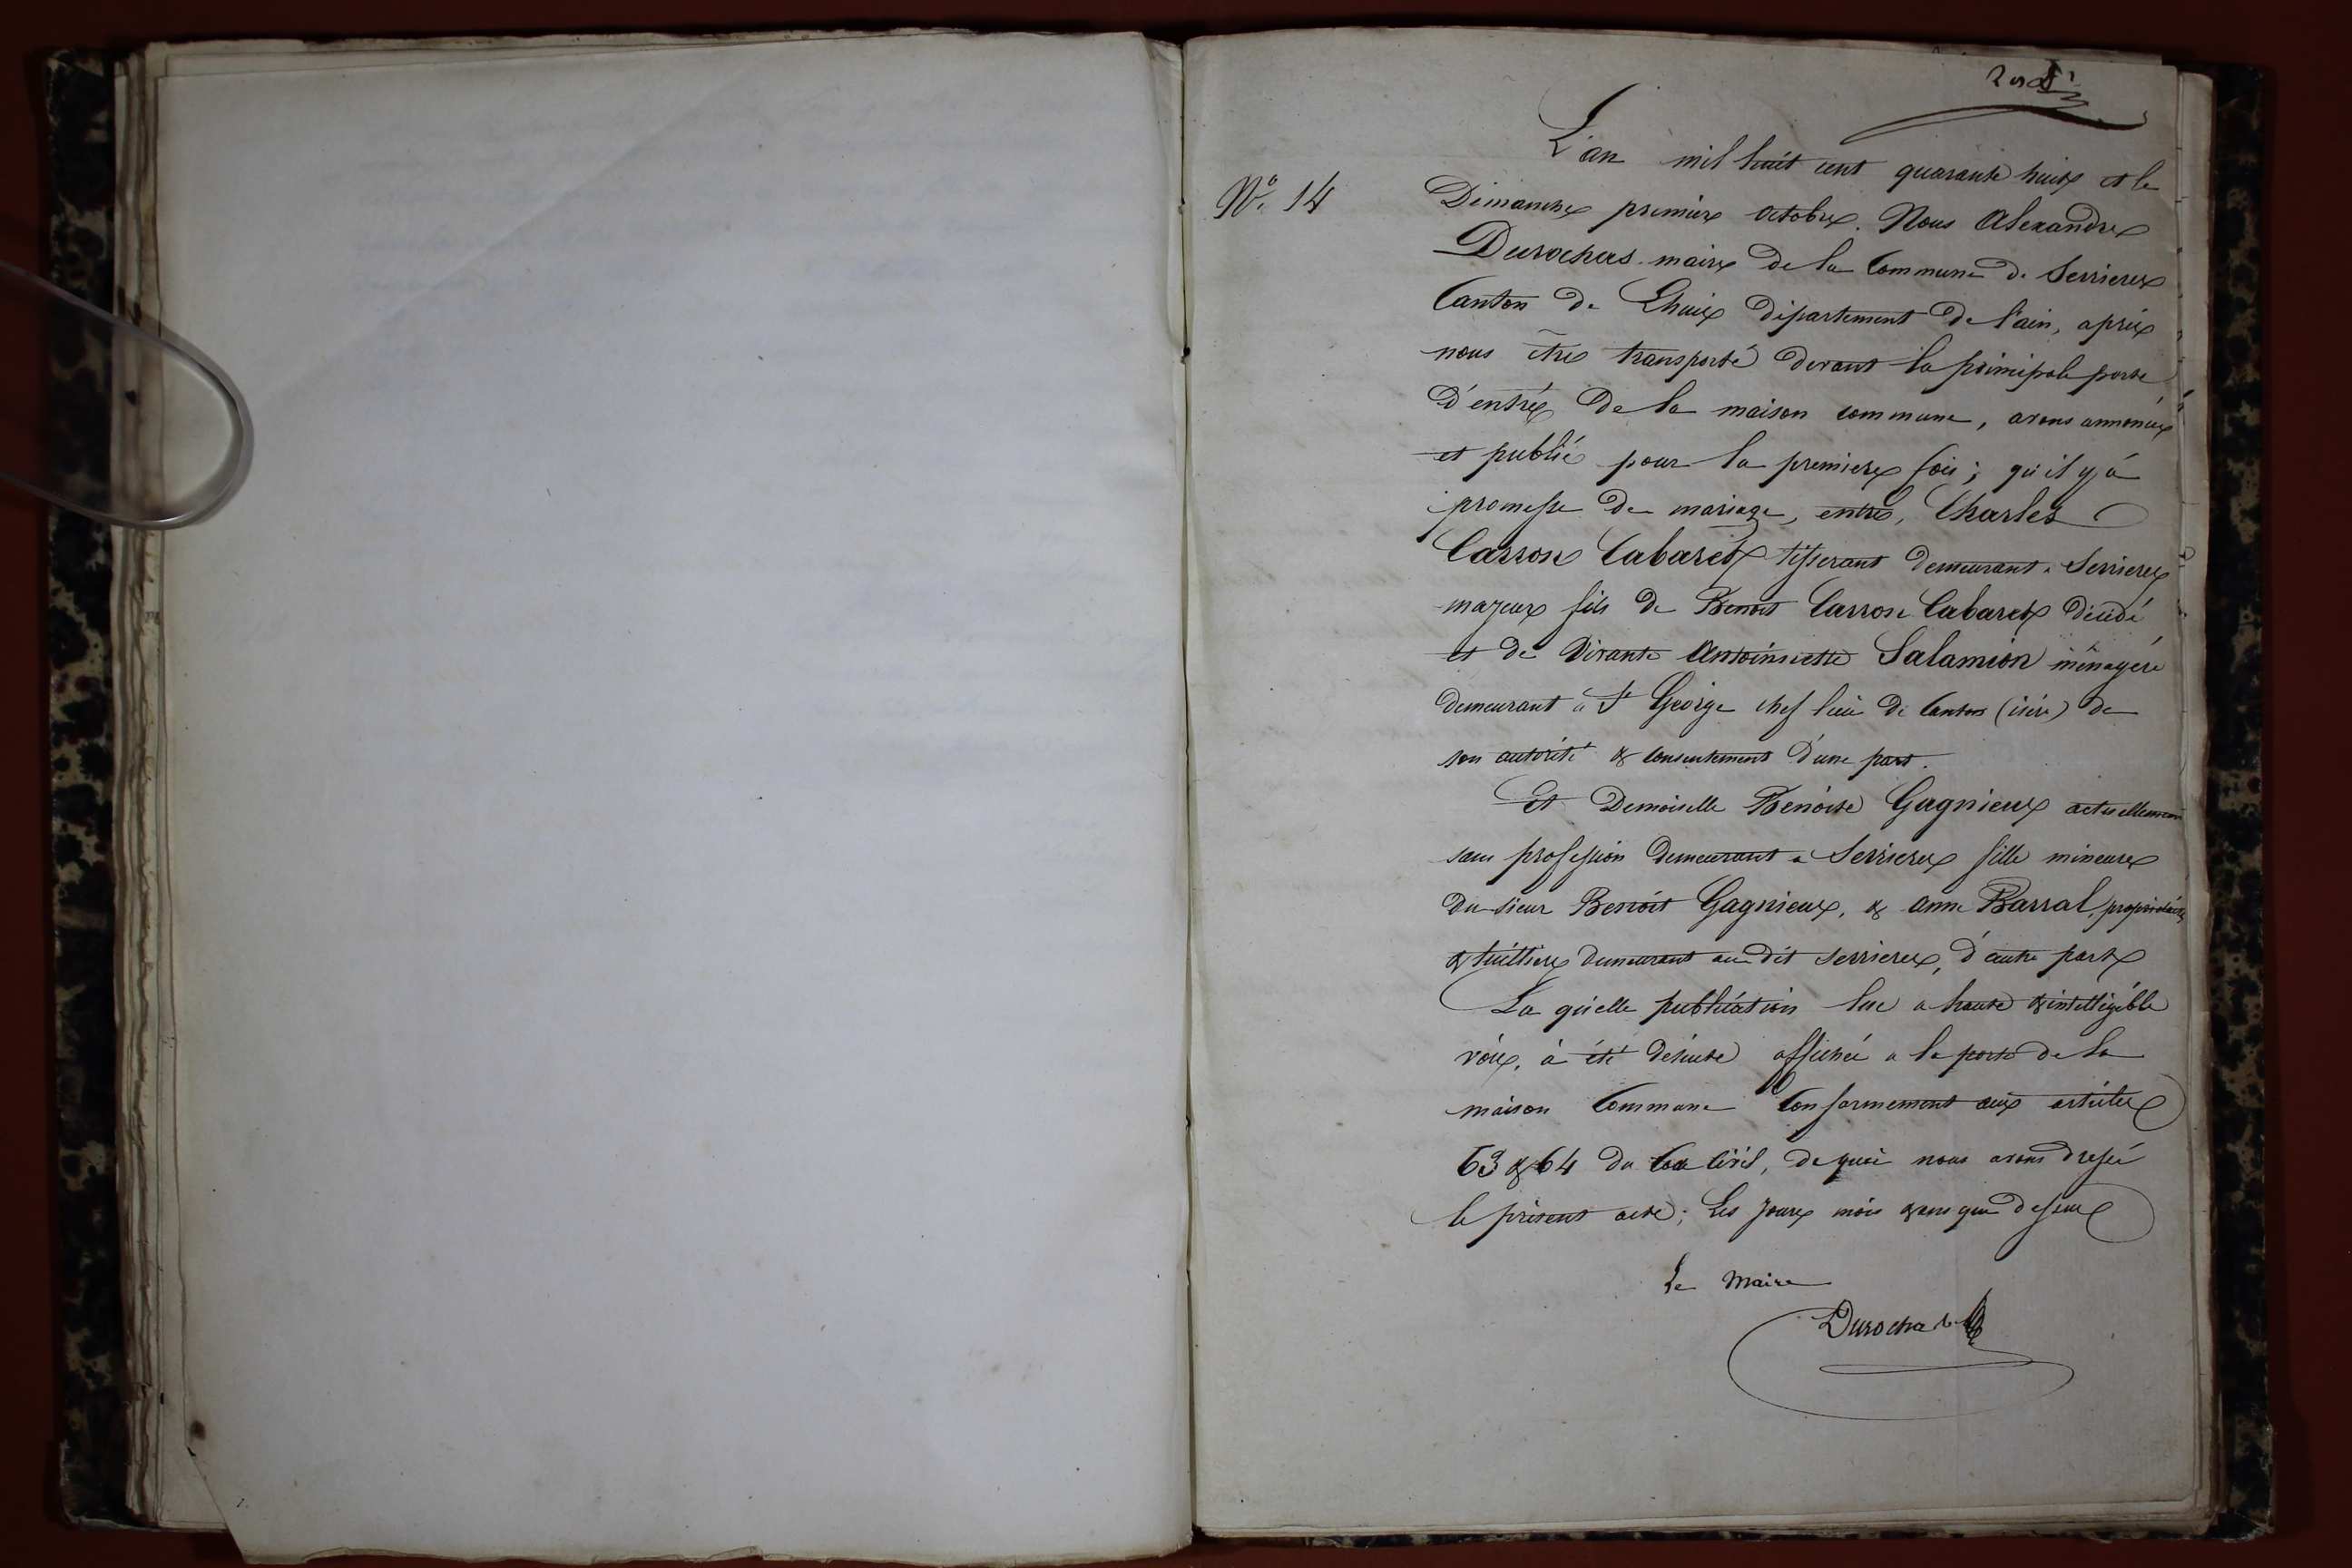 N° 14
L'an mil huit cent quarante huit et le
Dimanche premier octobre. Nous Alexandre
Durochas maire de la Commune de Serrieres
Canton de Lhuis département de l'ain, après
nous être transporté devant la principale porte
d'entrée de la maison commune, avons annoncé
et publié pour la premiere fois; qu'il y à
promesse de mariage, entre, Charles
Carron Cabaret tisserant demeurant a Serrieres
majeur fils de Benoit Carron Cabaret décédé
et de vivante Antoinnette Salamion ménagère
demeurant à St George chef lieu de Canton (isère) de
son autorité & consentement d'une part.
Et Demoiselle Benoite Gagnieux actuellement
sans profession demeurant a Serrieres fille mineure
du sieur Benoit Gagnieux, & anne Barral, propriétaire
& tuillier demeurant au dit Serrieres, d'autre part
La quelle publication lue a haute & intelligible
voix, à été desuite affichée a la porte de la
maison Commune Conformement aux articles
63 & 64 du Code Civil, de quoi nous avons dressé
le présent acte; Les jour mois & an que dessus
Le Maire
Durochas